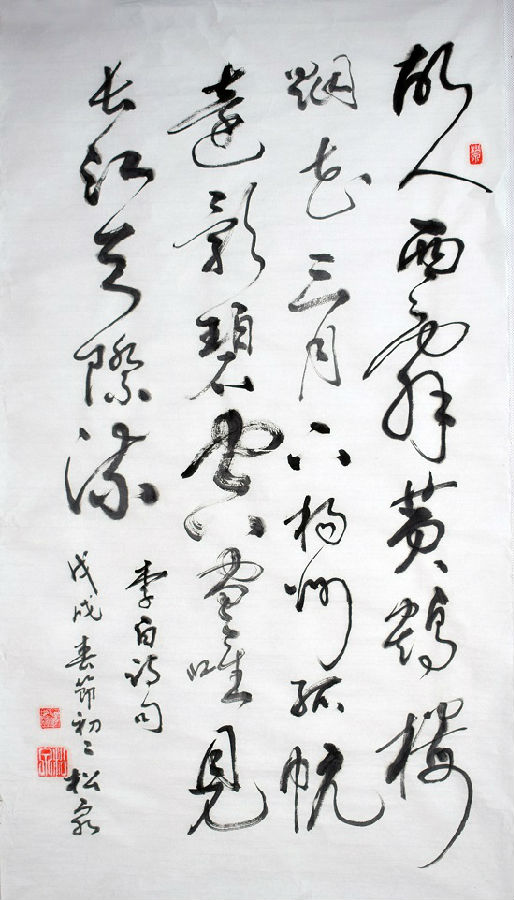 故人西辭黄鹤楼
烟花三月下杨州孤帆
遠影碧空盡唯見
长江天際流
李白诗句
戊戌春節初二松泉